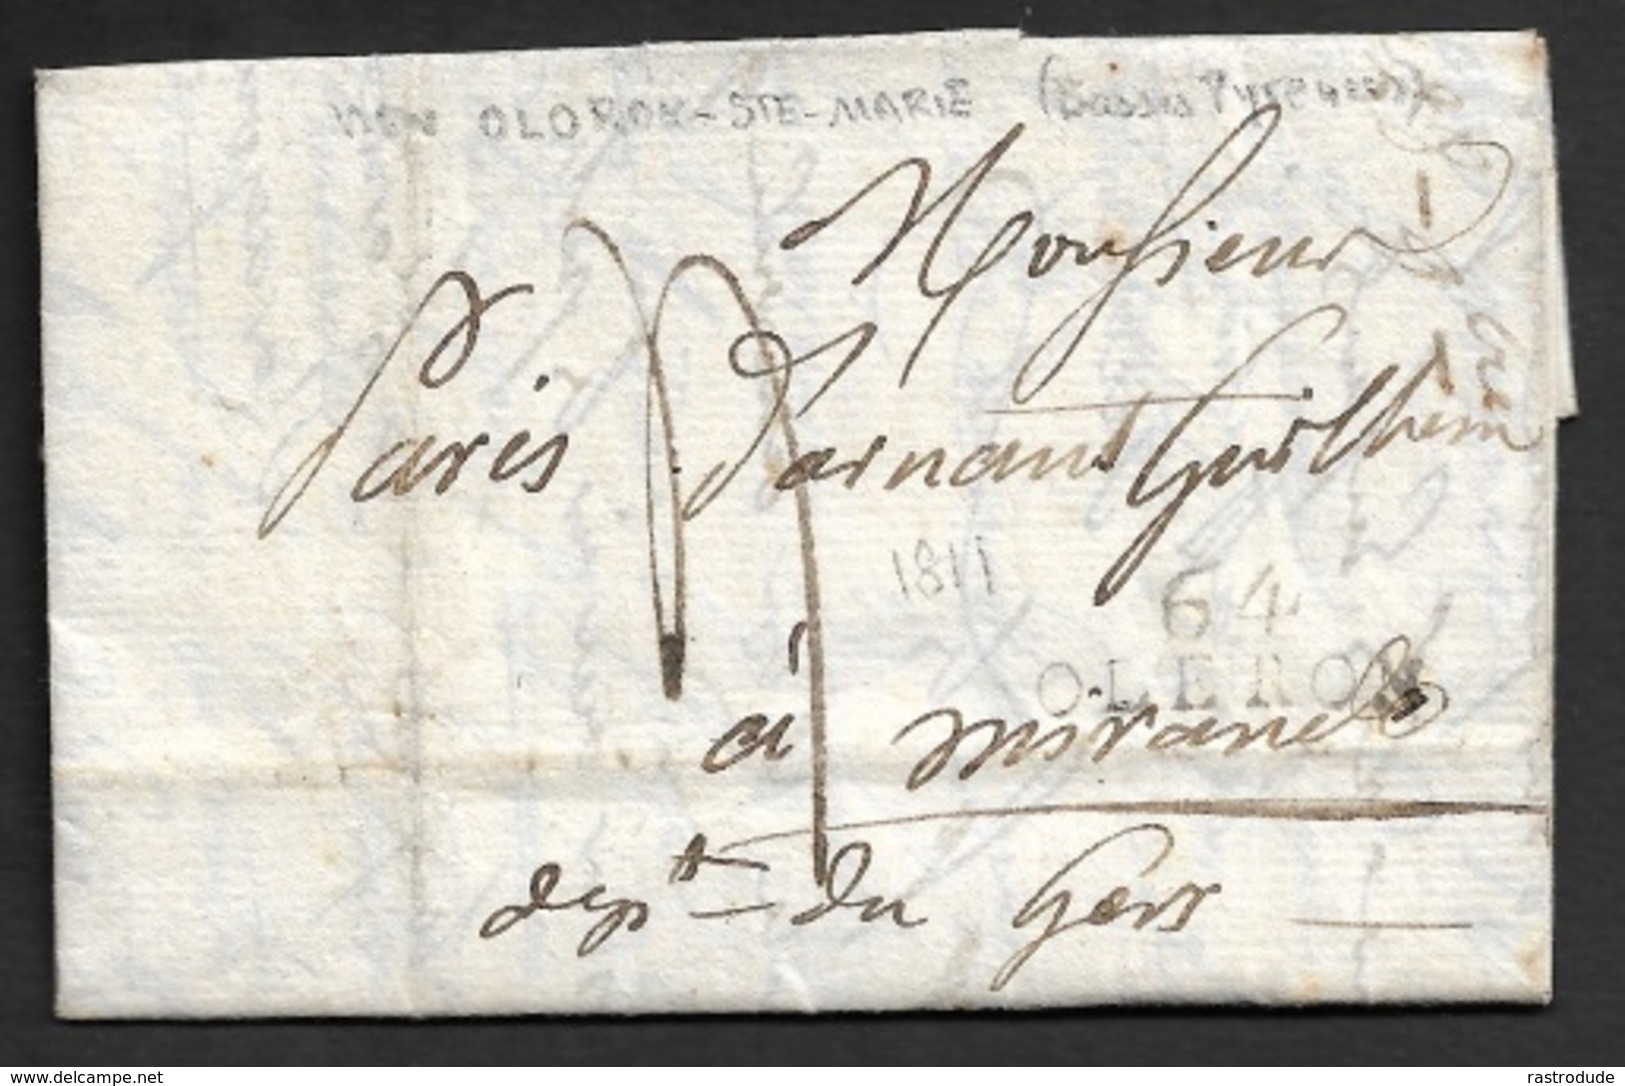 OLORON-STE-MARIE (Basses Pyrenees)
Monsieur
Paris Darnaud Guilhem
1811
64
OLERON
à mirande
dept du Gers
www.delcampe.net
rastrodude